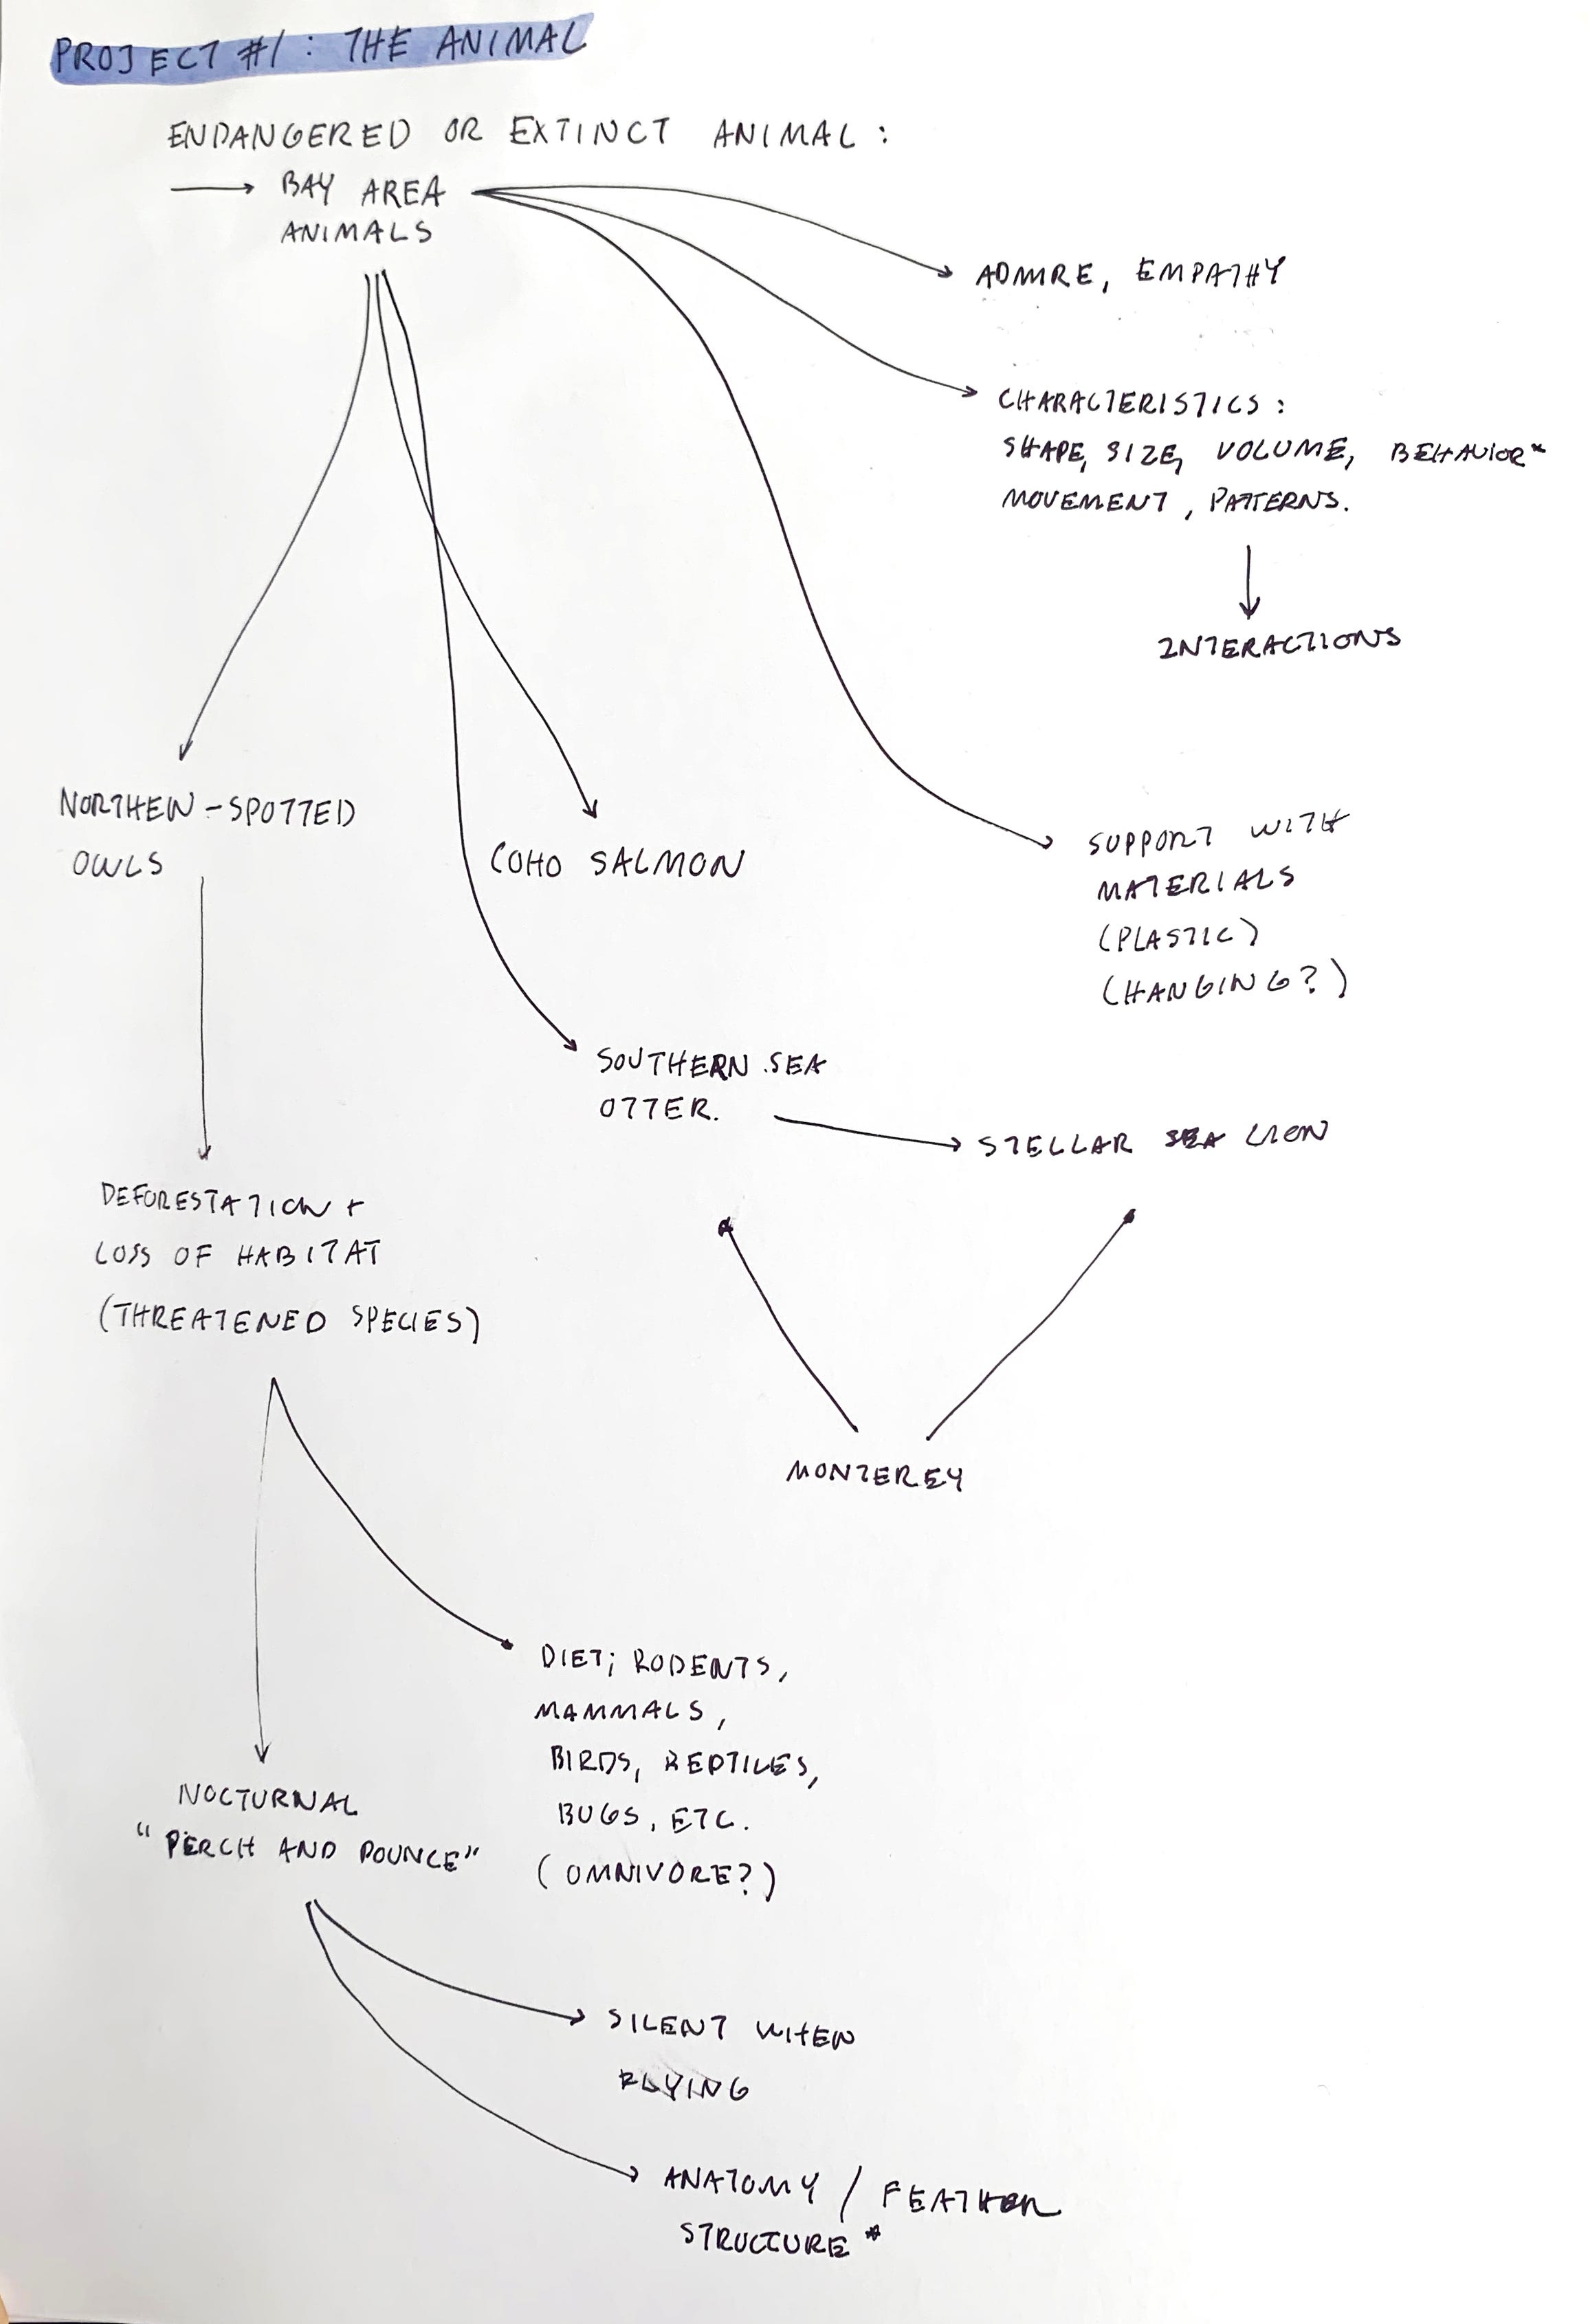 PROJECT #1 : THE ANIMAL
ENDANGERED OR EXTINCT ANIMAL :
BAY AREA
ANIMALS
ADMIRE, EMPATHY
CHARACTERISTICS :
SHAPE, SIZE, VOLUME, BEHAVIOR*
MOVEMENT, PATTERNS.
INTERACTIONS
NORTHEN-SPOTTED
OWLS
COHO SALMON
SUPPORT WITH
MATERIALS
(PLASTIC)
(HANGING?)
SOUTHERN SEA
OTTER.
STELLAR SEA LION
DEFORESTATION +
LOSS OF HABITAT
(THREATENED SPECIES)
MONTEREY
DIET; RODENTS,
MAMMALS,
BIRDS, REPTILES,
BUGS, ETC.
(OMNIVORE?)
NOCTURNAL
"PERCH AND POUNCE"
SILENT WHEN
FLYING
ANATOMY / FEATHER
STRUCTURE*